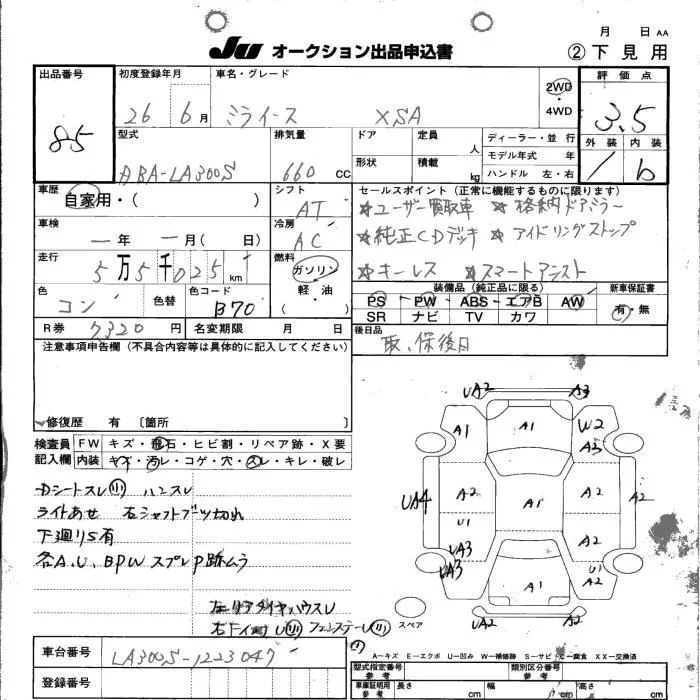 月 日 AA
JU オークション出品申込書
②下見用
出品番号 初度登録年月 車名・グレード 2WD 4WD 評価点
85 26 6月 ミライース XSA 3.5
型式 排気量 ドア 定員 人 ディーラー・並行 外装 内装
ABA-LA300S 660 CC 形状 積載 kg モデル年式 年 ハンドル 左・右 b
車歴 自家用・( ) シフト AT セールスポイント(正常に機能するものに限ります)
☆ユーザー買取車 ☆格納ドアミラー
車検 ー年 ー月(日) 冷房 AC ☆純正CDデッキ ☆アイドリングストップ
走行 5万5千025km 燃料 ガソリン・軽・油 ( )
☆キーレス ☆スマートアシスト
色 コン 色替 色コード B70
装備品(純正品に限る) 新車保証書
PS PW ABS エアB AW 有・無
SR ナビ TV カワ
R券 7320円 名変期限 月 日 後日品 取、保後日
注意事項申告欄(不具合内容等は具体的に記入してください)
修復歴 有 〔箇所
検査員 FW キズ・飛石・ヒビ割・リペア跡・X要
記入欄 内装 キズ・汚レ・コゲ・穴・スレ・キレ・破レ
Dシートスレ小 ハンスレ
ライトあせ 右シャフトブーツ切れ
下廻りS有
各A.U.BPW スプレP跡ムラ
左リアタイヤハウスU
UA2 A3
A1 A1 W2
A3
UA4 A2 A1 A2 A2
U1
UA3 A2
UA3 U1
A1 A2
UA2 A2
スペア
A-キズ E-エクボ U-凹み W-補修跡 S-サビ C-腐食 XX-交換済
車台番号 LA300S-1223047
登録番号
型式指定番号 参考 類別区分番号 参考
車庫証明用 参考 長さ cm 幅 cm 高さ cm